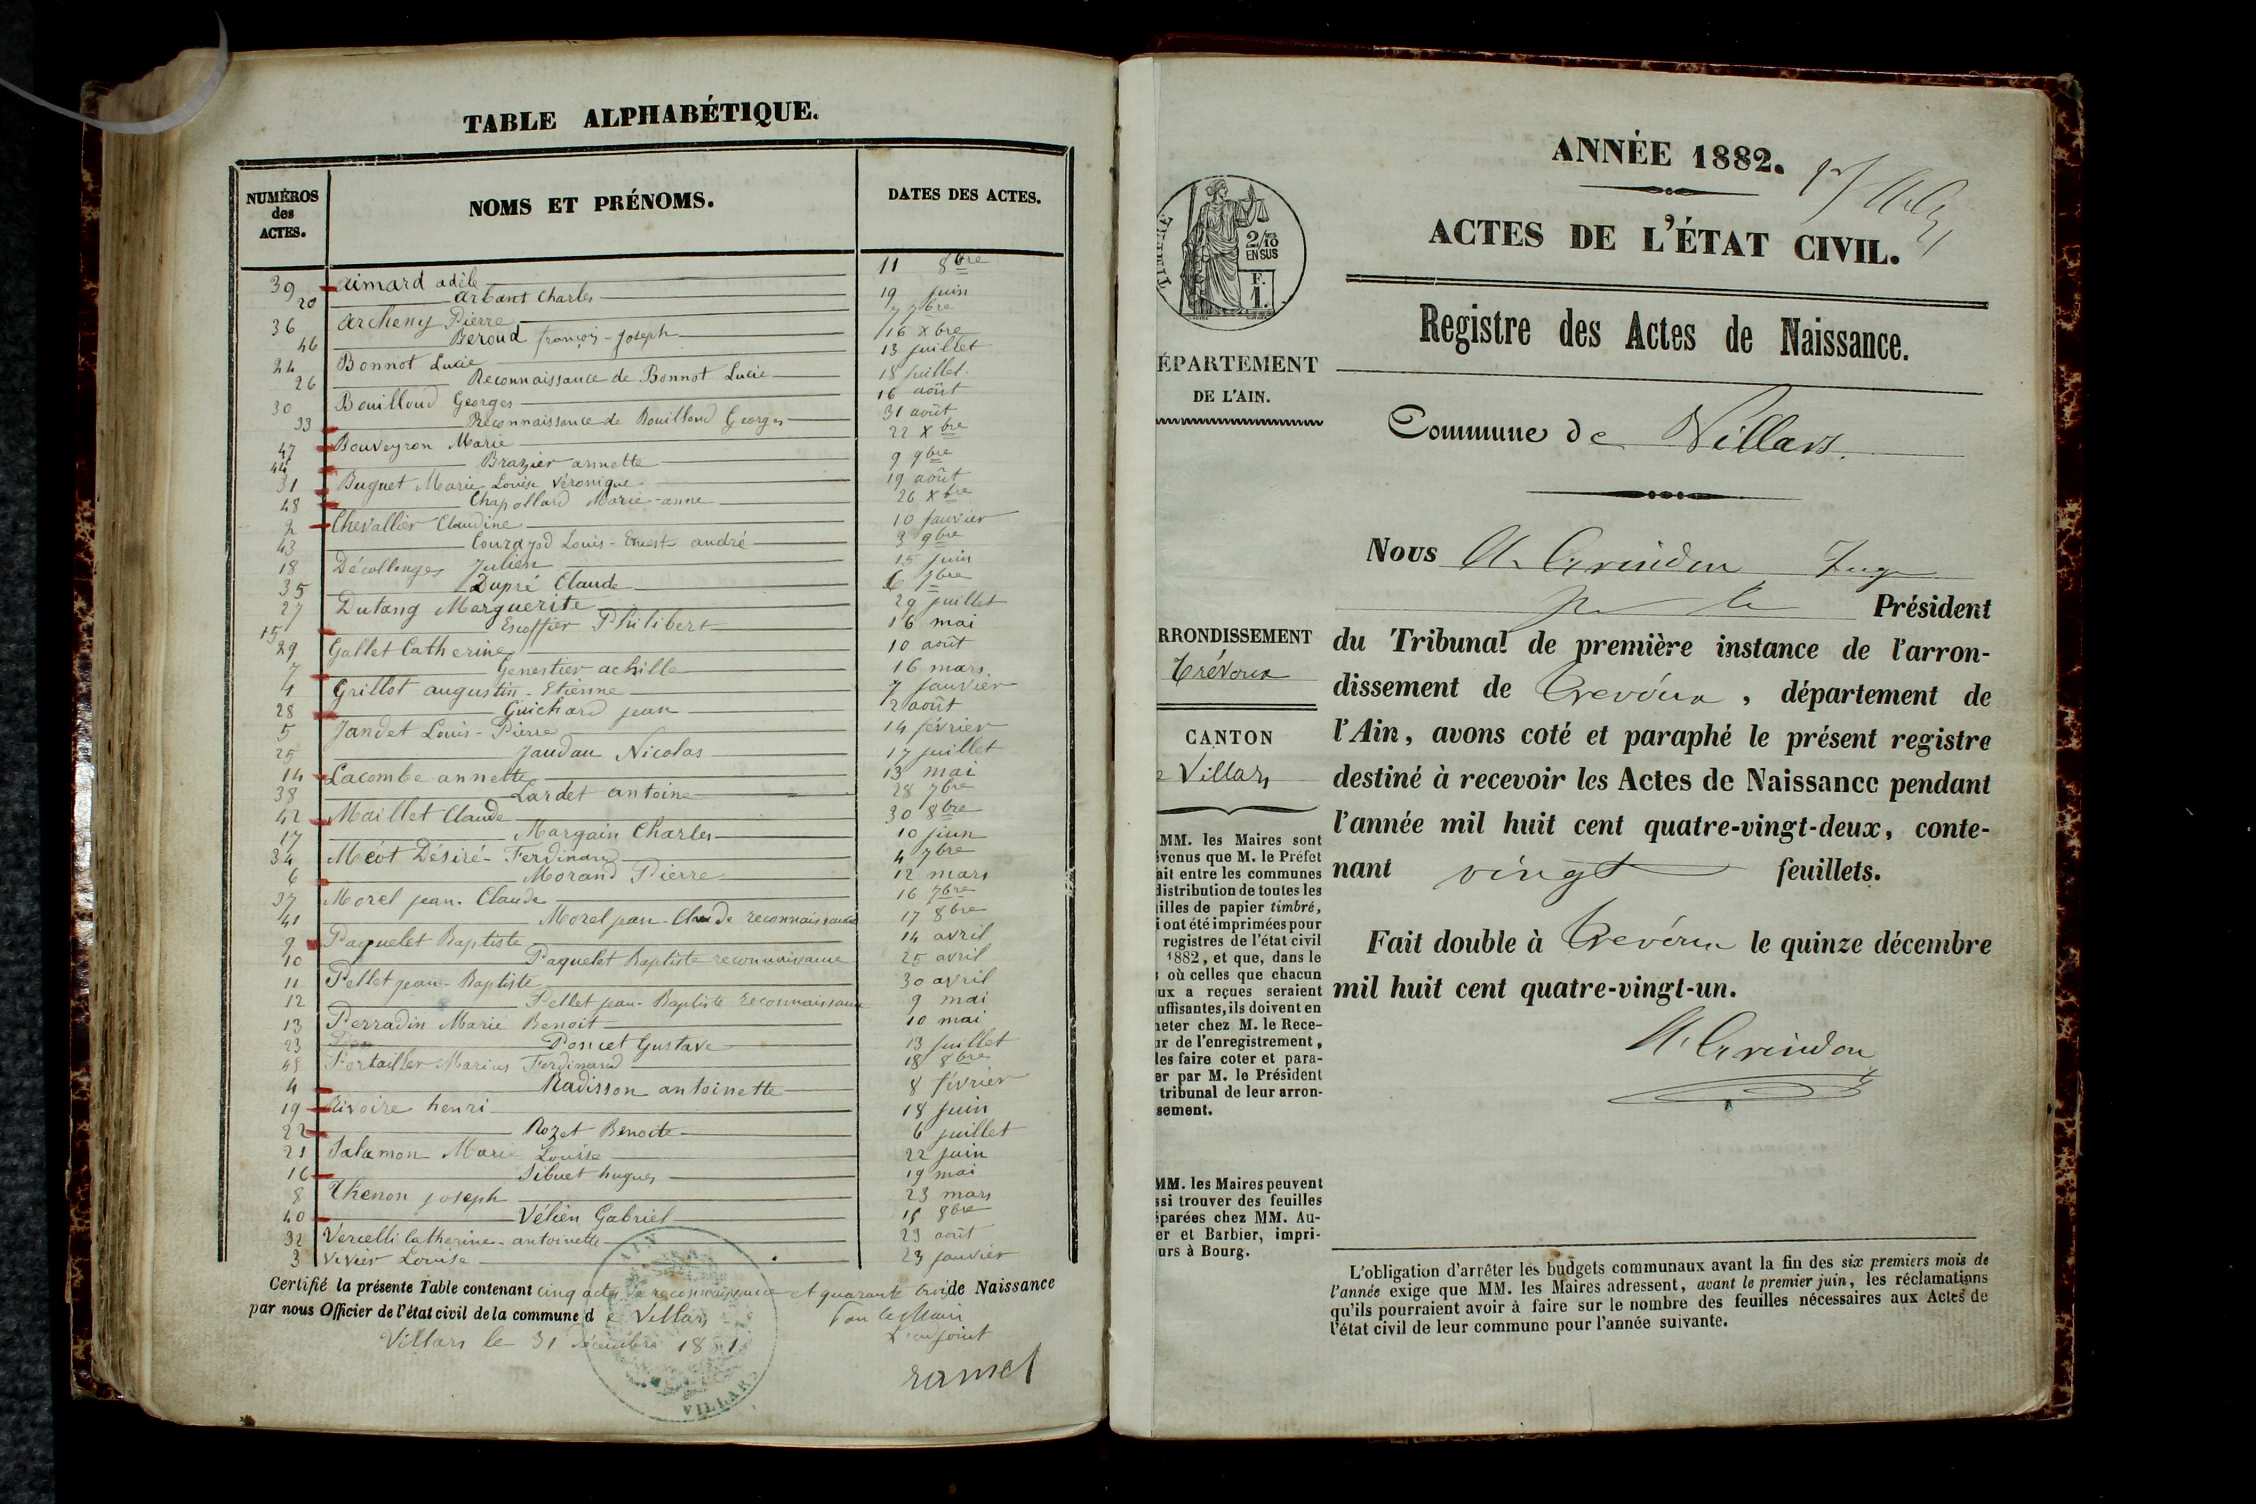 TABLE ALPHABÉTIQUE.
NUMÉROS des ACTES.
NOMS ET PRÉNOMS.
DATES DES ACTES.
39 Aimard adèle 11 8bre
20 Arbant Charles 19 juin
36 Archeny Pierre 7 7bre
46 Beroud françois-joseph 16 Xbre
24 Bonnot Lucie 13 juillet
26 Reconnaissance de Bonnot Lucie 18 juillet.
30 Bouilloud Georges 16 août
33 Reconnaissance de Bouilloud Georges 31 août
47 Bouveyron Marie 22 Xbre
44 Brazier annette 9 9bre
31 Buguet Marie Louise Véronique 19 août
48 Chapolland Marie-anne 26 Xbre
2 Chevallier Claudine 10 janvier
43 Courajod Louis-Ernest andré 3 9bre
18 Décollonges Julien 15 juin
35 Dupré Claude 6 7bre
27 Dutang Marguerite 29 juillet
15 Escoffier Philibert 16 mai
29 Gallet Catherine 10 août
7 Genestier achille 16 mars
1 Grillot augustin-Etienne 7 janvier
28 Guichard jean 2 août
5 Jandet Louis-Pierre 14 février
25 Jaudau Nicolas 17 juillet
14 Lacombe annette 13 mai
38 Lardet antoine 28 7bre
42 Maillet Claude 30 8bre
17 Margain Charles 10 juin
34 Méot Désiré-Ferdinand 4 7bre
6 Morand Pierre 12 mars
37 Morel jean-Claude 16 7bre
41 Morel jean-Claude reconnaissance 17 8bre
9 Paquelet Baptiste 14 avril
10 Paquelet Baptiste reconnaissance 25 avril
11 Pellet jean-Baptiste 30 avril
12 Pellet jean-Baptiste reconnaissance 9 mai
13 Perradin Marie Benoit 10 mai
23 Poncet Gustave 13 juillet
45 Portailler Marius Ferdinand 18 8bre
4 Radisson antoinette 8 février
19 Rivoire henri 18 juin
22 Rozet Benoite 6 juillet
21 Salamon Marie Louise 22 juin
16 Sibuet hugues 19 mai
8 Thenon joseph 23 mars
40 Vélien Gabriel 15 8bre
32 Vercelli Catherine-antoinette 23 août
3 Vivier Louise 23 janvier
Certifié la présente Table contenant cinq actes de reconnaissance et quarante trois de Naissance
par nous Officier de l'état civil de la commune de Villars
Pour le Maire
L'adjoint
Villars le 31 Décembre 1881
ramel
AIN
VILLARS
ANNÉE 1882.
ACTES DE L'ÉTAT CIVIL.
2/10
EN SUS
F.
1.
Registre des Actes de Naissance.
ÉPARTEMENT
DE L'AIN.
Commune de Villars.
Nous A. Grindon Juge
pr le Président
du Tribunal de première instance de l'arron-
dissement de Trévoux, département de
l'Ain, avons coté et paraphé le présent registre
destiné à recevoir les Actes de Naissance pendant
l'année mil huit cent quatre-vingt-deux, conte-
nant vingt feuillets.
Fait double à Trévoux le quinze décembre
mil huit cent quatre-vingt-un.
A. Grindon
RRONDISSEMENT
Trévoux
CANTON
e Villars
MM. les Maires sont
évenus que M. le Préfet
ait entre les communes
distribution de toutes les
illes de papier timbré,
i ont été imprimées pour
registres de l'état civil
1882, et que, dans le
s où celles que chacun
ux a reçues seraient
uffisantes, ils doivent en
heter chez M. le Rece-
ur de l'enregistrement,
les faire coter et para-
er par M. le Président
tribunal de leur arron-
sement.
MM. les Maires peuvent
ssi trouver des feuilles
éparées chez MM. Au-
er et Barbier, impri-
urs à Bourg.
L'obligation d'arrêter les budgets communaux avant la fin des six premiers mois de
l'année exige que MM. les Maires adressent, avant le premier juin, les réclamations
qu'ils pourraient avoir à faire sur le nombre des feuilles nécessaires aux Actes de
l'état civil de leur commune pour l'année suivante.